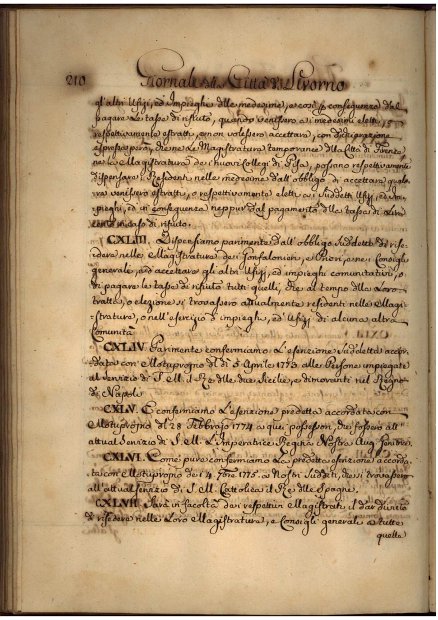 210 Giornale della Città di Livorno
gl'altri Ufizj, ed Impieghi delle medesime, e così p conseguenza dal
pagare le tasse di rifiuto, quando venissero a' medesimi eletti, o
respettivamente estratti, e non volessero accettare, con dichiarazione
espressa però, che ne le Magistrature temporanee della Città di Firenze,
ne la Magistratura dei nuovi Collegi di Pisa, possano respettivamente
dispensare i Residenti nelle medesime dall'obbligo di accettare qualo-
ra venissero estratti, o respettivamente eletti a' suddetti Ufizj, ed Im-
pieghi, ed in conseguenza neppur dal pagamento delle tasse di Lire
cento in caso di rifiuto.
CXLIII. Dispensiamo parimente dall'obbligo suddetto di risi-
edere nelle Magistrature dei Gonfalonieri, e Priori, e nei Consigli
generali, ed accettare gli altri Ufizj, ed impieghi comunitativi, o
di pagare le tasse di rifiuto tutti quelli, che al tempo della Loro
tratta, o elezione si trovassero attualmente residenti nelle Magi-
strature, o nell'esercizio d'impieghi, ed Ufizj di alcuna altra
Comunità
CXLIV. Parimente confermiamo L'esenzione suddetta accor-
data con Motuproprio del dì 5 Aprile 1773 alle Persone impiegate
al servizio di S. M. il Re delle due Sicilie, e dimoranti nel Regno
di Napoli
CXLV. E confermiamo L'esenzione predetta accordata con
Motuproprio del 28 Febbraio 1774 a quei possessori, che fossero all'
attual Servizio di S. M. L'Imperatrice Regina Nostra Aug.
CXLVI. Come pure confermiamo La predetta esenzione accorda-
ta con Motuproprio de 14 1775 a Nostri Sudditi, che si trovassero
all'attual servizio di S. M. Cattolica il Re delle Spagne.
CXLVII. Sarà in facoltà dei respettivi Magistrati il dar divieto
di risedere nelle Loro Magistrature, e Consigli generali a tutte
quelle